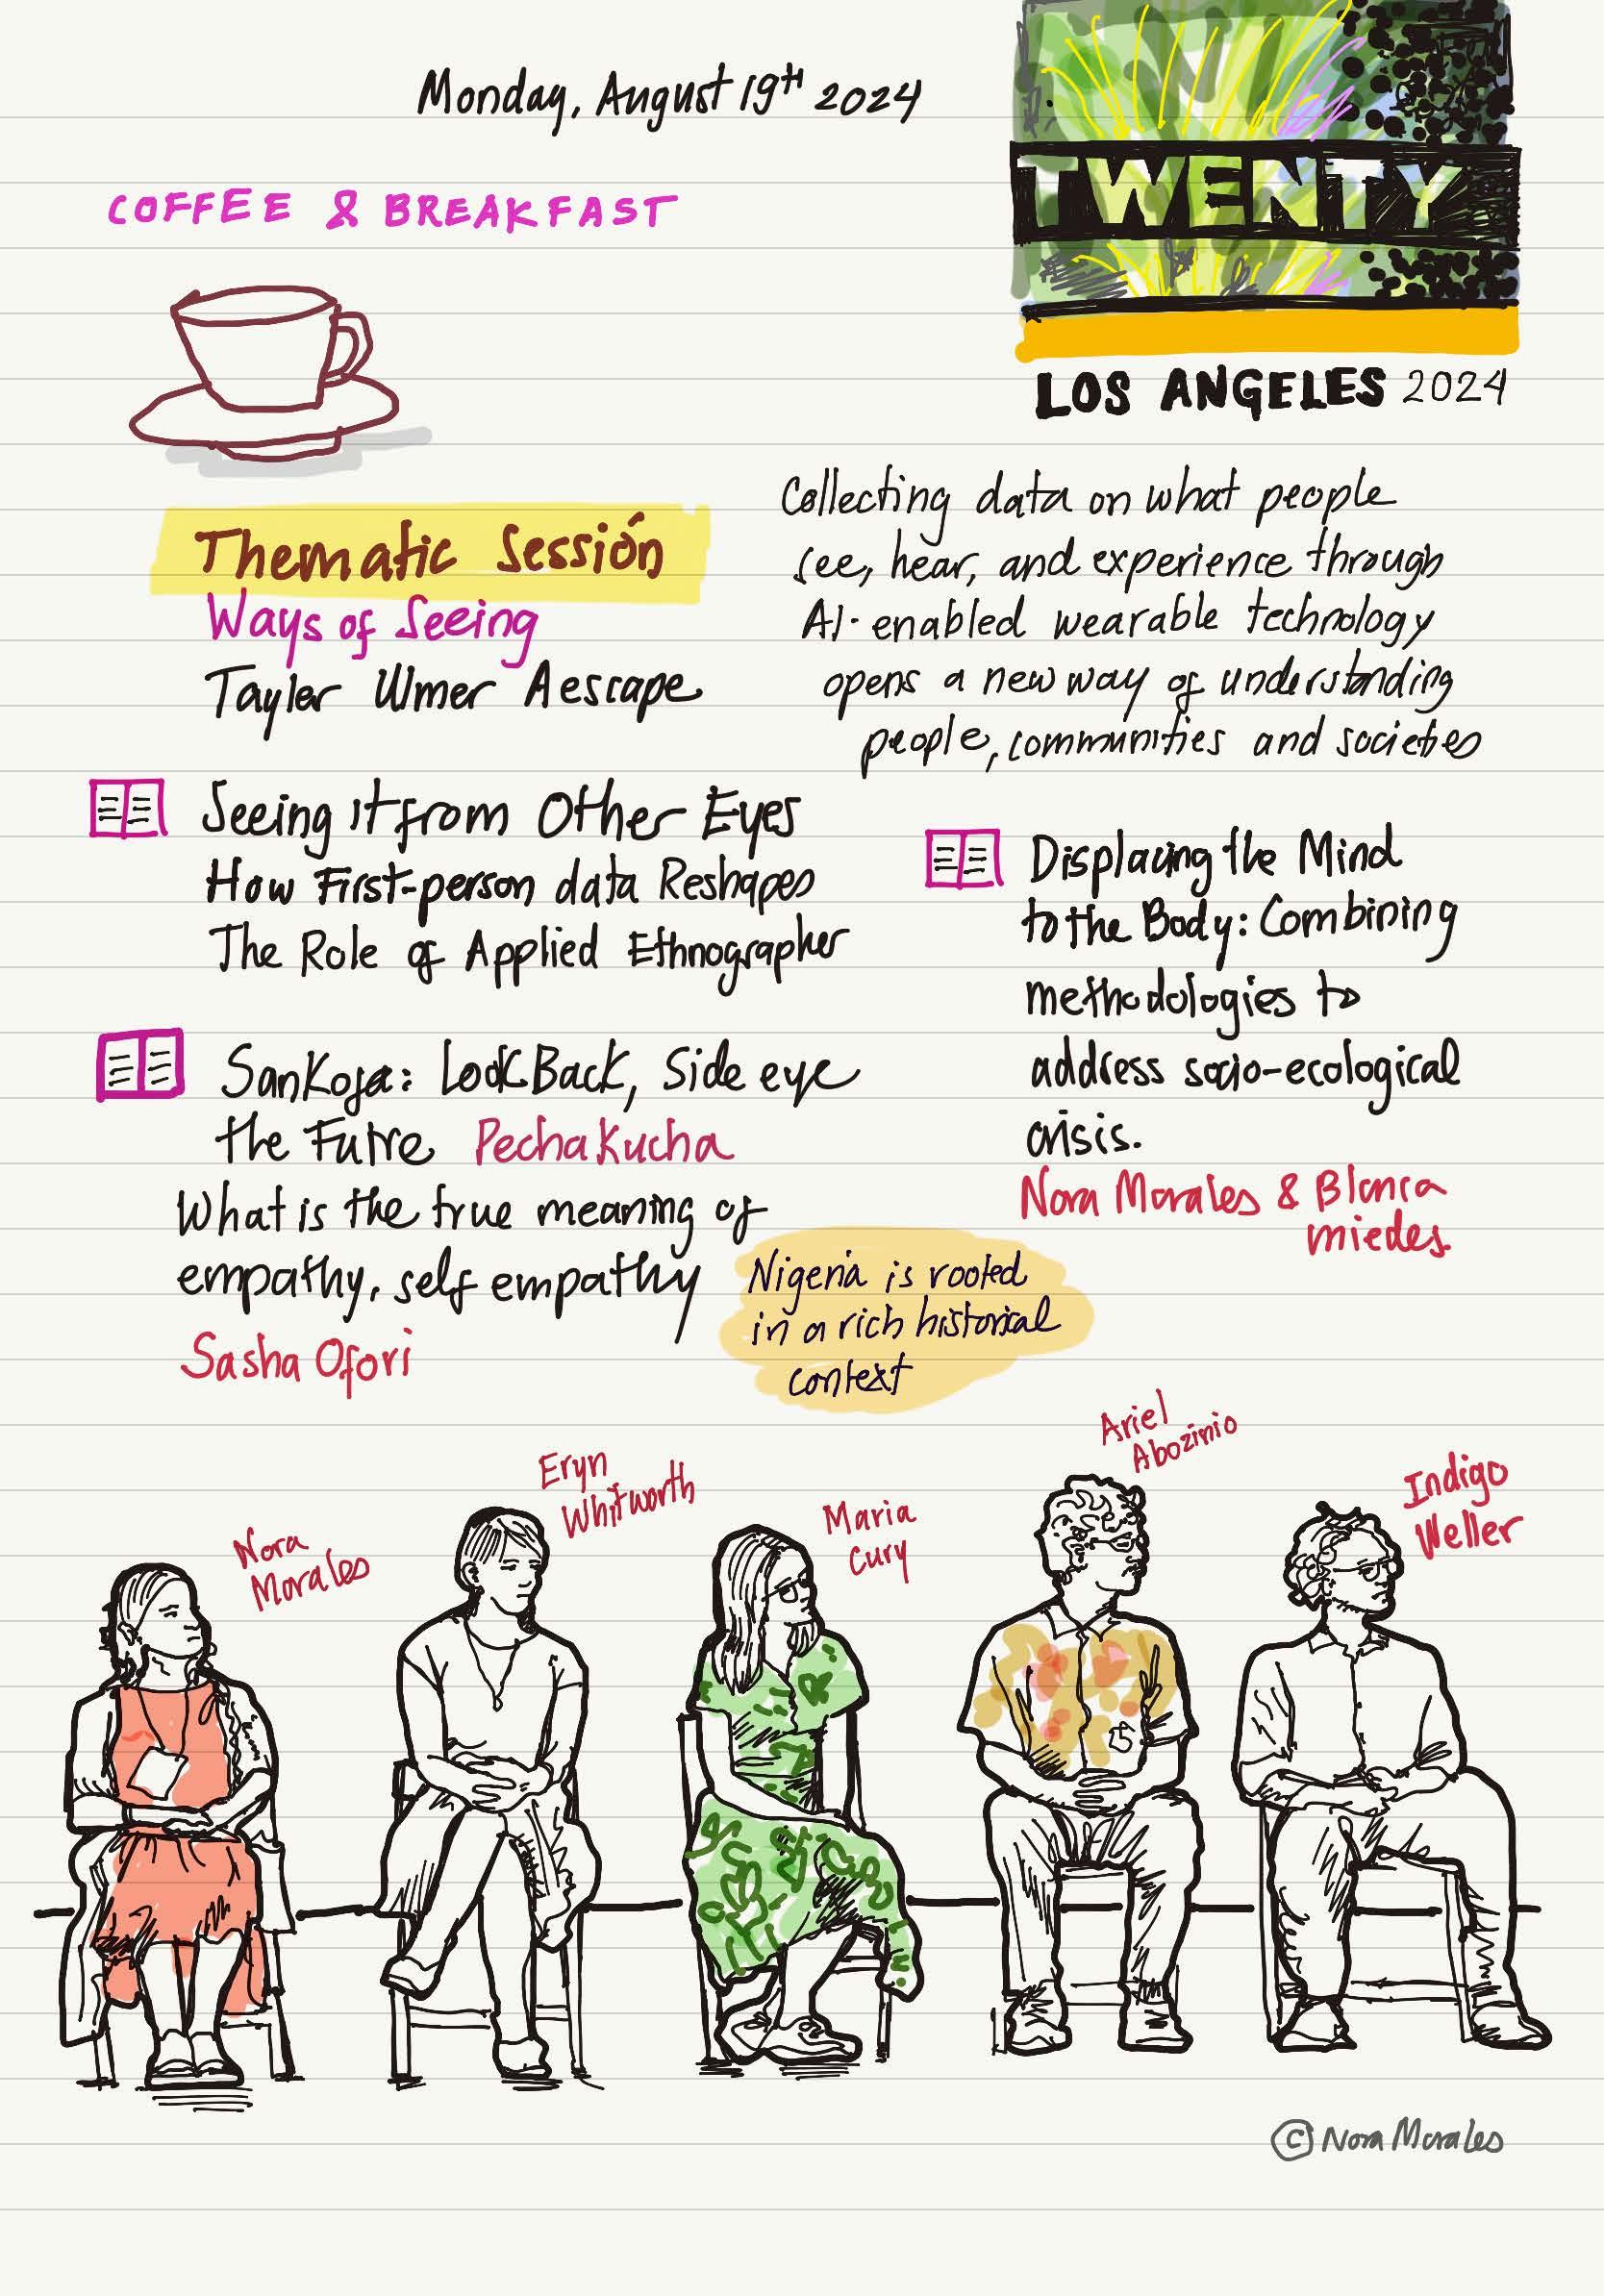 Monday, August 19TH 2024
COFFEE & BREAKFAST
TWENTY
LOS ANGELES 2024
Thematic Sessión
Ways of Seeing
Tayler Ulmer Aescape
Collecting data on what people
see, hear, and experience through
AI-enabled wearable technology
opens a new way of understanding
people, communities and societies
Seeing it from Other Eyes
How First-person data Reshapes
The Role of Applied Ethnographer
Sankofa: Look Back, Side eye
the Futre Pecha Kucha
What is the true meaning of
empathy, self empathy
Sasha Ofori
Nigeria is rooted
in a rich historical
context
Displacing the Mind
to the Body: Combining
methodologies to
address socio-ecological
crisis.
Nora Morales & Blanca
miedes.
Nora
Morales
Eryn
Whitworth
Maria
Cury
Ariel
Abozinio
Indigo
Weller
© Nora Morales